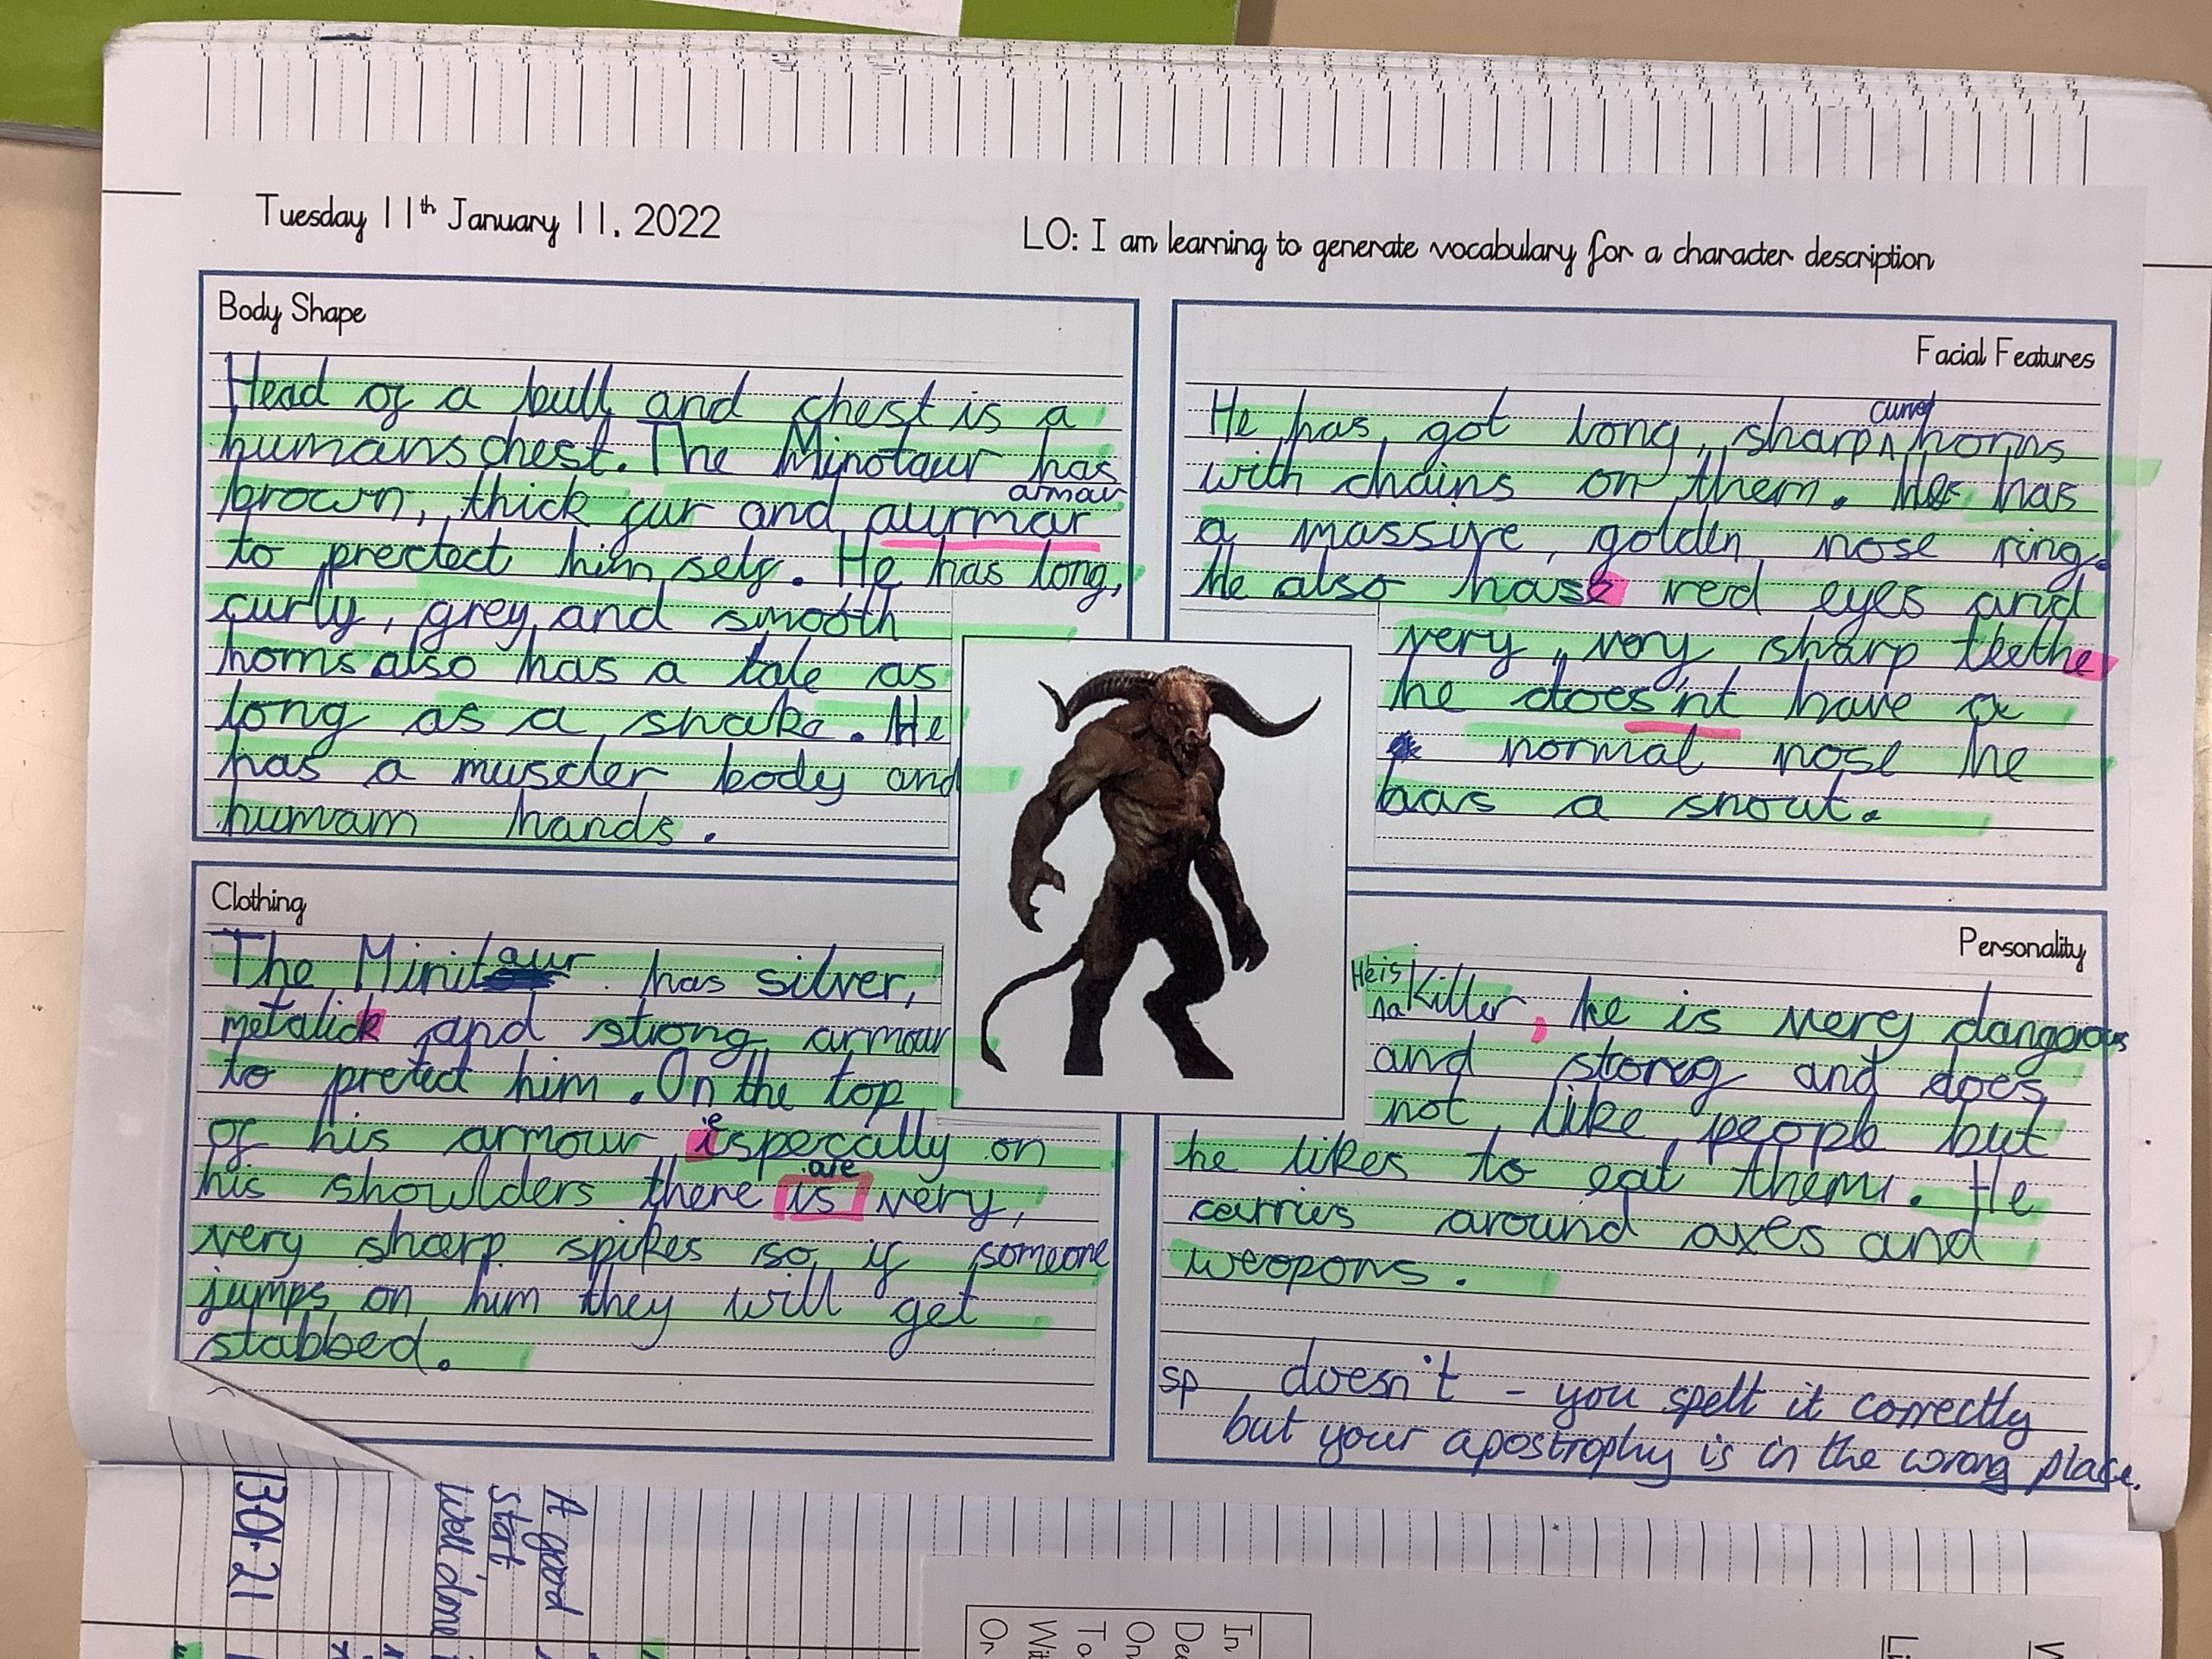 Tuesday 11th January 11, 2022
LO: I am learning to generate vocabulary for a character description
Body Shape
Head of a bull and chest is a
humans chest. The Minotaur has
armour
brown, thick fur and aurmar
to prectect him self. He has long,
curly, grey and smooth
horns also has a tale as
long as a snake. He
has a muscler body and
humam hands.
Facial Features
curved
He has got long, sharp ^ horns
with chains on them. He has
a massive, golden nose ring.
He also hase red eyes and
very, very sharp teethe
he does'nt have a
normal nose he
has a snout.
Clothing
The Minitaur has silver,
metalick and strong armour
to pretect him. On the top
e
of his armour ispecally on
are
his shoulders there is very,
very sharp spikes so if someone
jumps on him they will get
stabbed.
Personality
He is
a Killer, he is very dangorous
and storog and does
not like people but
he likes to eat them. He
carries around axes and
weopons.
sp doesn't - you spelt it correctly
but your apostrophy is in the wrong place.
13.01.21
A good
start
Well done
In
De
On
To
Wit
Or